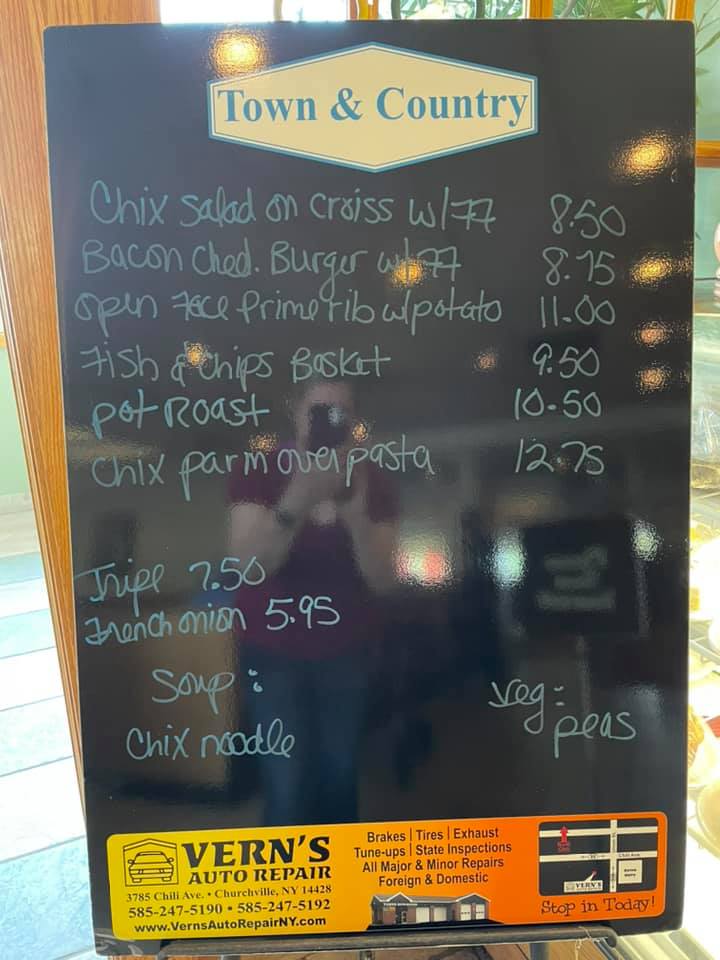 Town & Country
Chix Salad on Croiss w/FF 8.50
Bacon Ched. Burger w/FF 8.75
open Face Prime rib w/potato 11.00
Fish & Chips Basket 9.50
pot Roast 10.50
Chix parm over pasta 12.75
Tripe 7.50
French onion 5.95
Soup:
Chix noodle
Veg:
peas
VERN'S
AUTO REPAIR
3785 Chili Ave. • Churchville, NY 14428
585-247-5190 • 585-247-5192
www.VernsAutoRepairNY.com
Brakes | Tires | Exhaust
Tune-ups | State Inspections
All Major & Minor Repairs
Foreign & Domestic
Chili Ave.
VERN'S
Stop in Today!